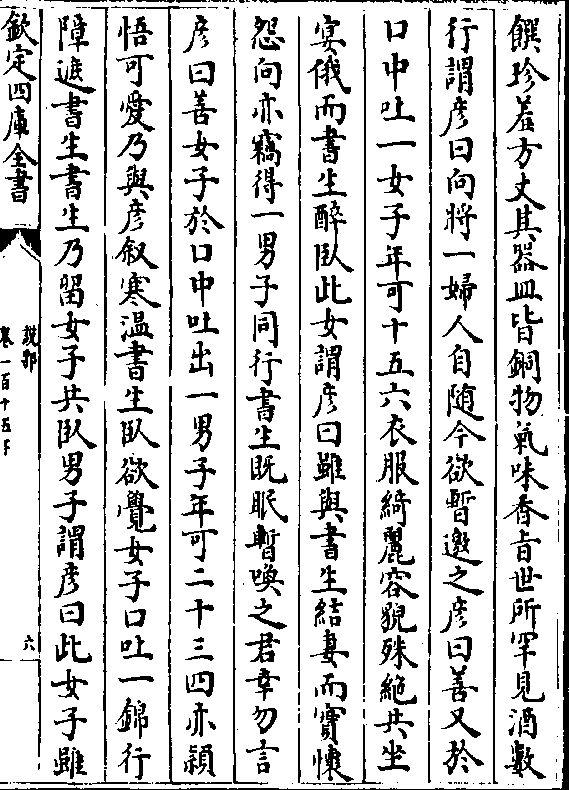 饌珍羞方丈其器皿皆銅物氣味香旨世所罕見酒數
行謂彦曰向將一婦人自随今欲暫邀之彦曰善又於
口中吐一女子年可十五六衣服綺麗容貌殊絶共坐
宴俄而書生醉臥此女謂彦曰雖與書生結妻而實懐
怨向亦竊得一男子同行書生既眠暫喚之君幸勿言
彦曰善女子於口中吐出一男子年可二十三四亦頴
悟可愛乃與彦叙寒温書生臥欲覺女子口吐一錦行
障遮書生書生乃留女子共臥男子謂彦曰此女子雖
欽定四庫全書
説郛
卷一百十五下
六